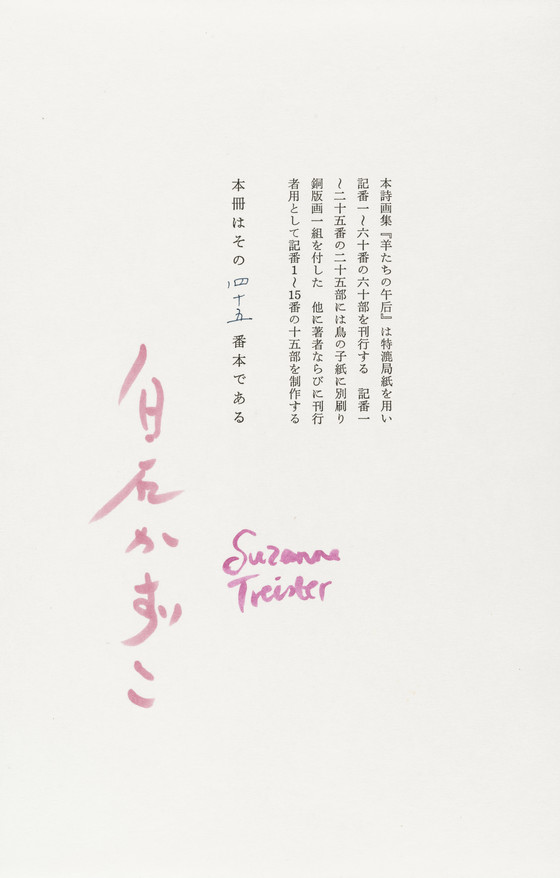 本詩画集『羊たちの午后』は特漉局紙を用い
記番一〜六十番の六十部を刊行する　記番一
〜二十五番の二十五部には鳥の子紙に別刷り
銅版画一組を付した　他に著者ならびに刊行
者用として記番1〜15番の十五部を制作する
本冊はその四十五番本である
白石かずこ
Suzanne
Treister